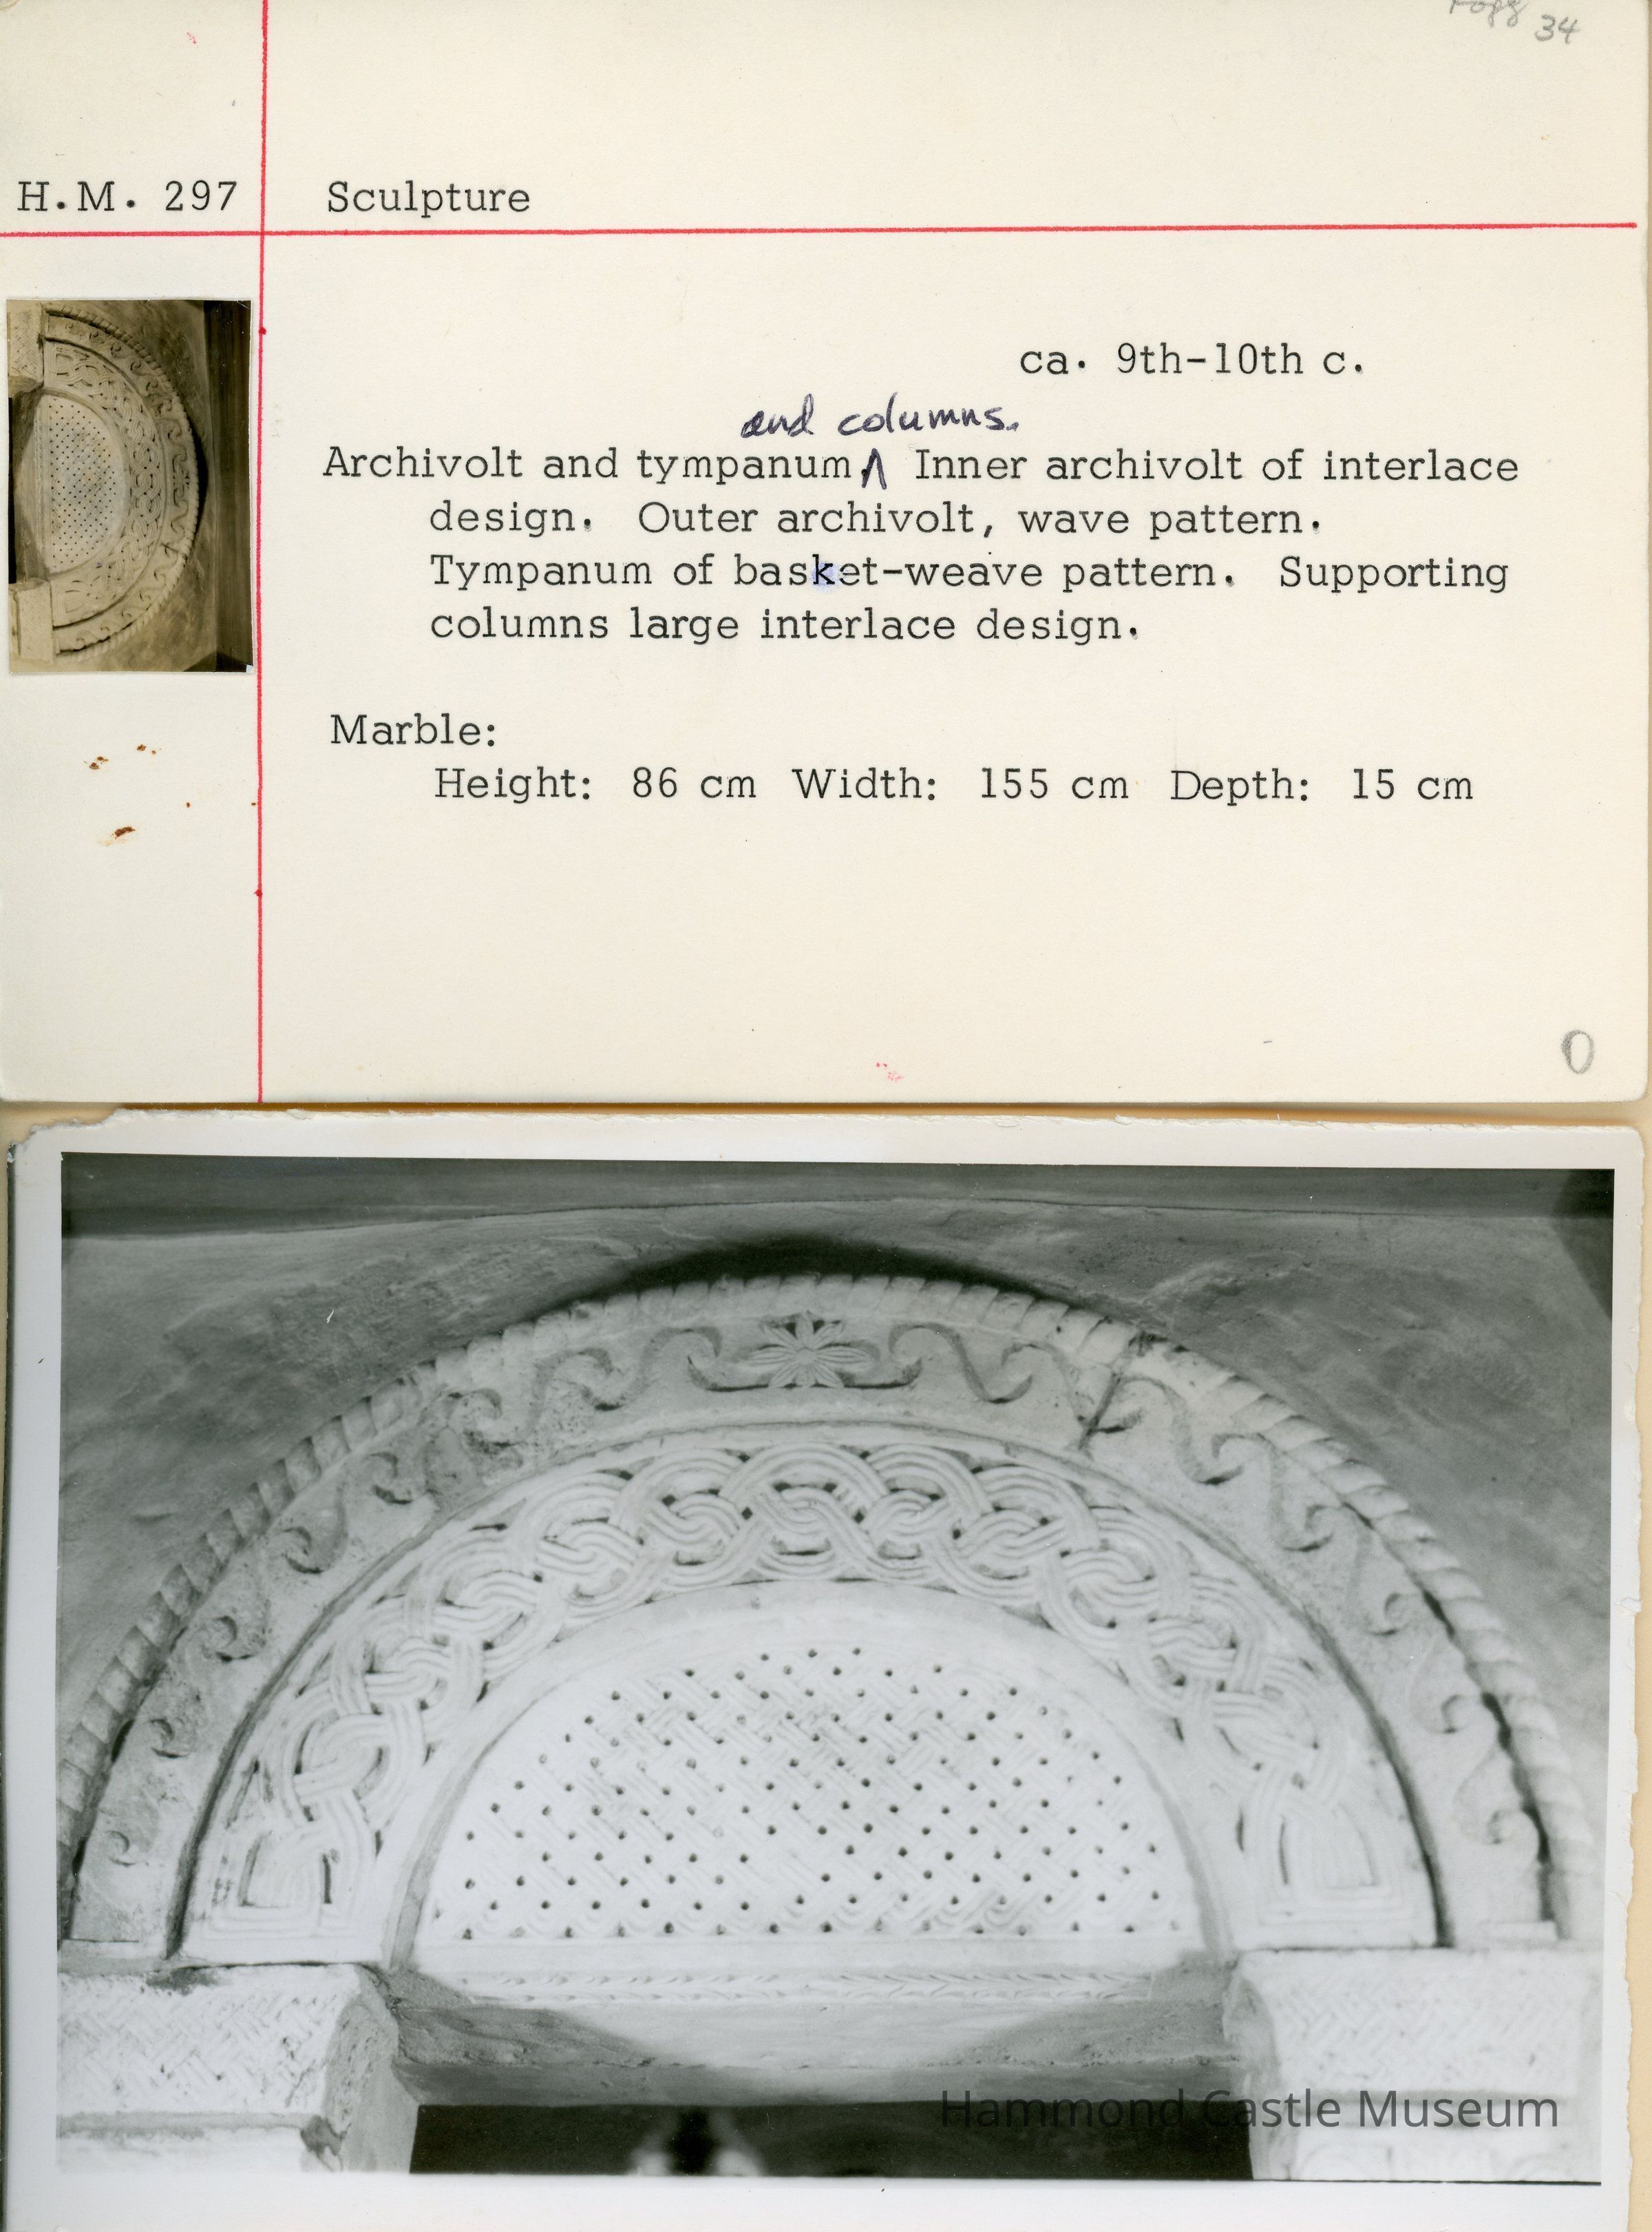 34
H.M. 297 Sculpture
ca. 9th-10th c.
and columns.
Archivolt and tympanum. Inner archivolt of interlace
design. Outer archivolt, wave pattern.
Tympanum of basket-weave pattern. Supporting
columns large interlace design.
Marble:
Height: 86 cm Width: 155 cm Depth: 15 cm
0
Hammond Castle Museum